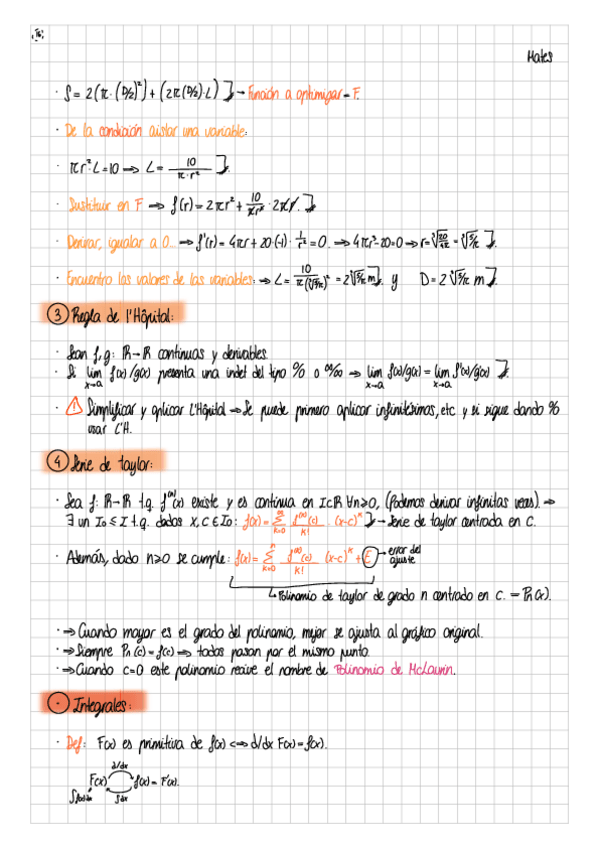 Mates
· S = 2(π·(D/2)²) + (2π(D/2)·L) ] → Función a optimizar = F.
· De la condición aislar una variable:
· πr²·L = 10 ⇒ L = 10/π·r² ].
· Sustituir en F ⇒ f(r) = 2πr² + 10/πr² · 2πr. ]
· Derivar, igualar a 0... ⇒ f'(r) = 4πr + 20·(-1)· 1/r² = 0. ⇒ 4πr³-20=0 ⇒ r = ∛20/4π = ∛5/π ].
· Encuentro los valores de las variables: ⇒ L = 10/π(∛5/π)² = 2∛5/π m ]. y D = 2 ∛5/π m ].
③ Regla de l'Hôpital:
· Sean f, g: ℝ→ℝ continuas y derivables.
· Si lim x→a f(x)/g(x) presenta una indet del tipo 0/0 o ∞/∞ ⇒ lim x→a f(x)/g(x) = lim x→a f'(x)/g'(x) ].
· ⚠ Simplificar y aplicar l'Hôpital ⇒ Se puede primero aplicar infinitésimos, etc y si sigue dando 0/0
usar L'H.
④ Serie de taylor:
· Sea f: ℝ→ℝ t.q. f⁽ⁿ⁾(x) existe y es continua en I⊂ℝ ∀n≥0, (Podemos derivar infinitas veces). ⇒
∃ un I₀ ≤ I t.q. dados x, c ∈ I₀: f(x) = ∞ Σ k=0 f⁽ᵏ⁾(c)/k! · (x-c)ᵏ ] → Serie de taylor centrada en c.
· Además, dado n≥0 se cumple: f(x) = n Σ k=0 f⁽ᵏ⁾(c)/k! (x-c)ᵏ + E → error del ajuste
↳ Polinomio de taylor de grado n centrado en c. — Pn(x).
· ⇒ Cuando mayor es el grado del polinomio, mejor se ajusta al gráfico original.
· ⇒ Siempre Pn(c) = f(c) ⇒ todos pasan por el mismo punto.
· ⇒ Cuando c=0 este polinomio recive el nombre de Polinomio de McLaurin.
· Integrales:
· Def: F(x) es primitiva de f(x) ⇔ d/dx F(x) = f(x).
d/dx
F(x) f(x) = F'(x).
∫f(x)dx ∫dx